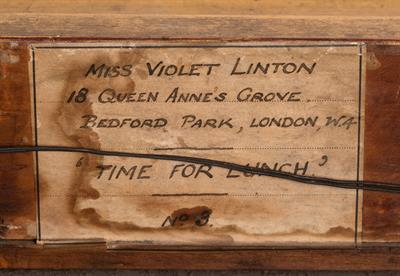 Miss Violet Linton
18 Queen Anne's Grove.
Bedford Park, London, W.4
'Time for Lunch.'
No 3.